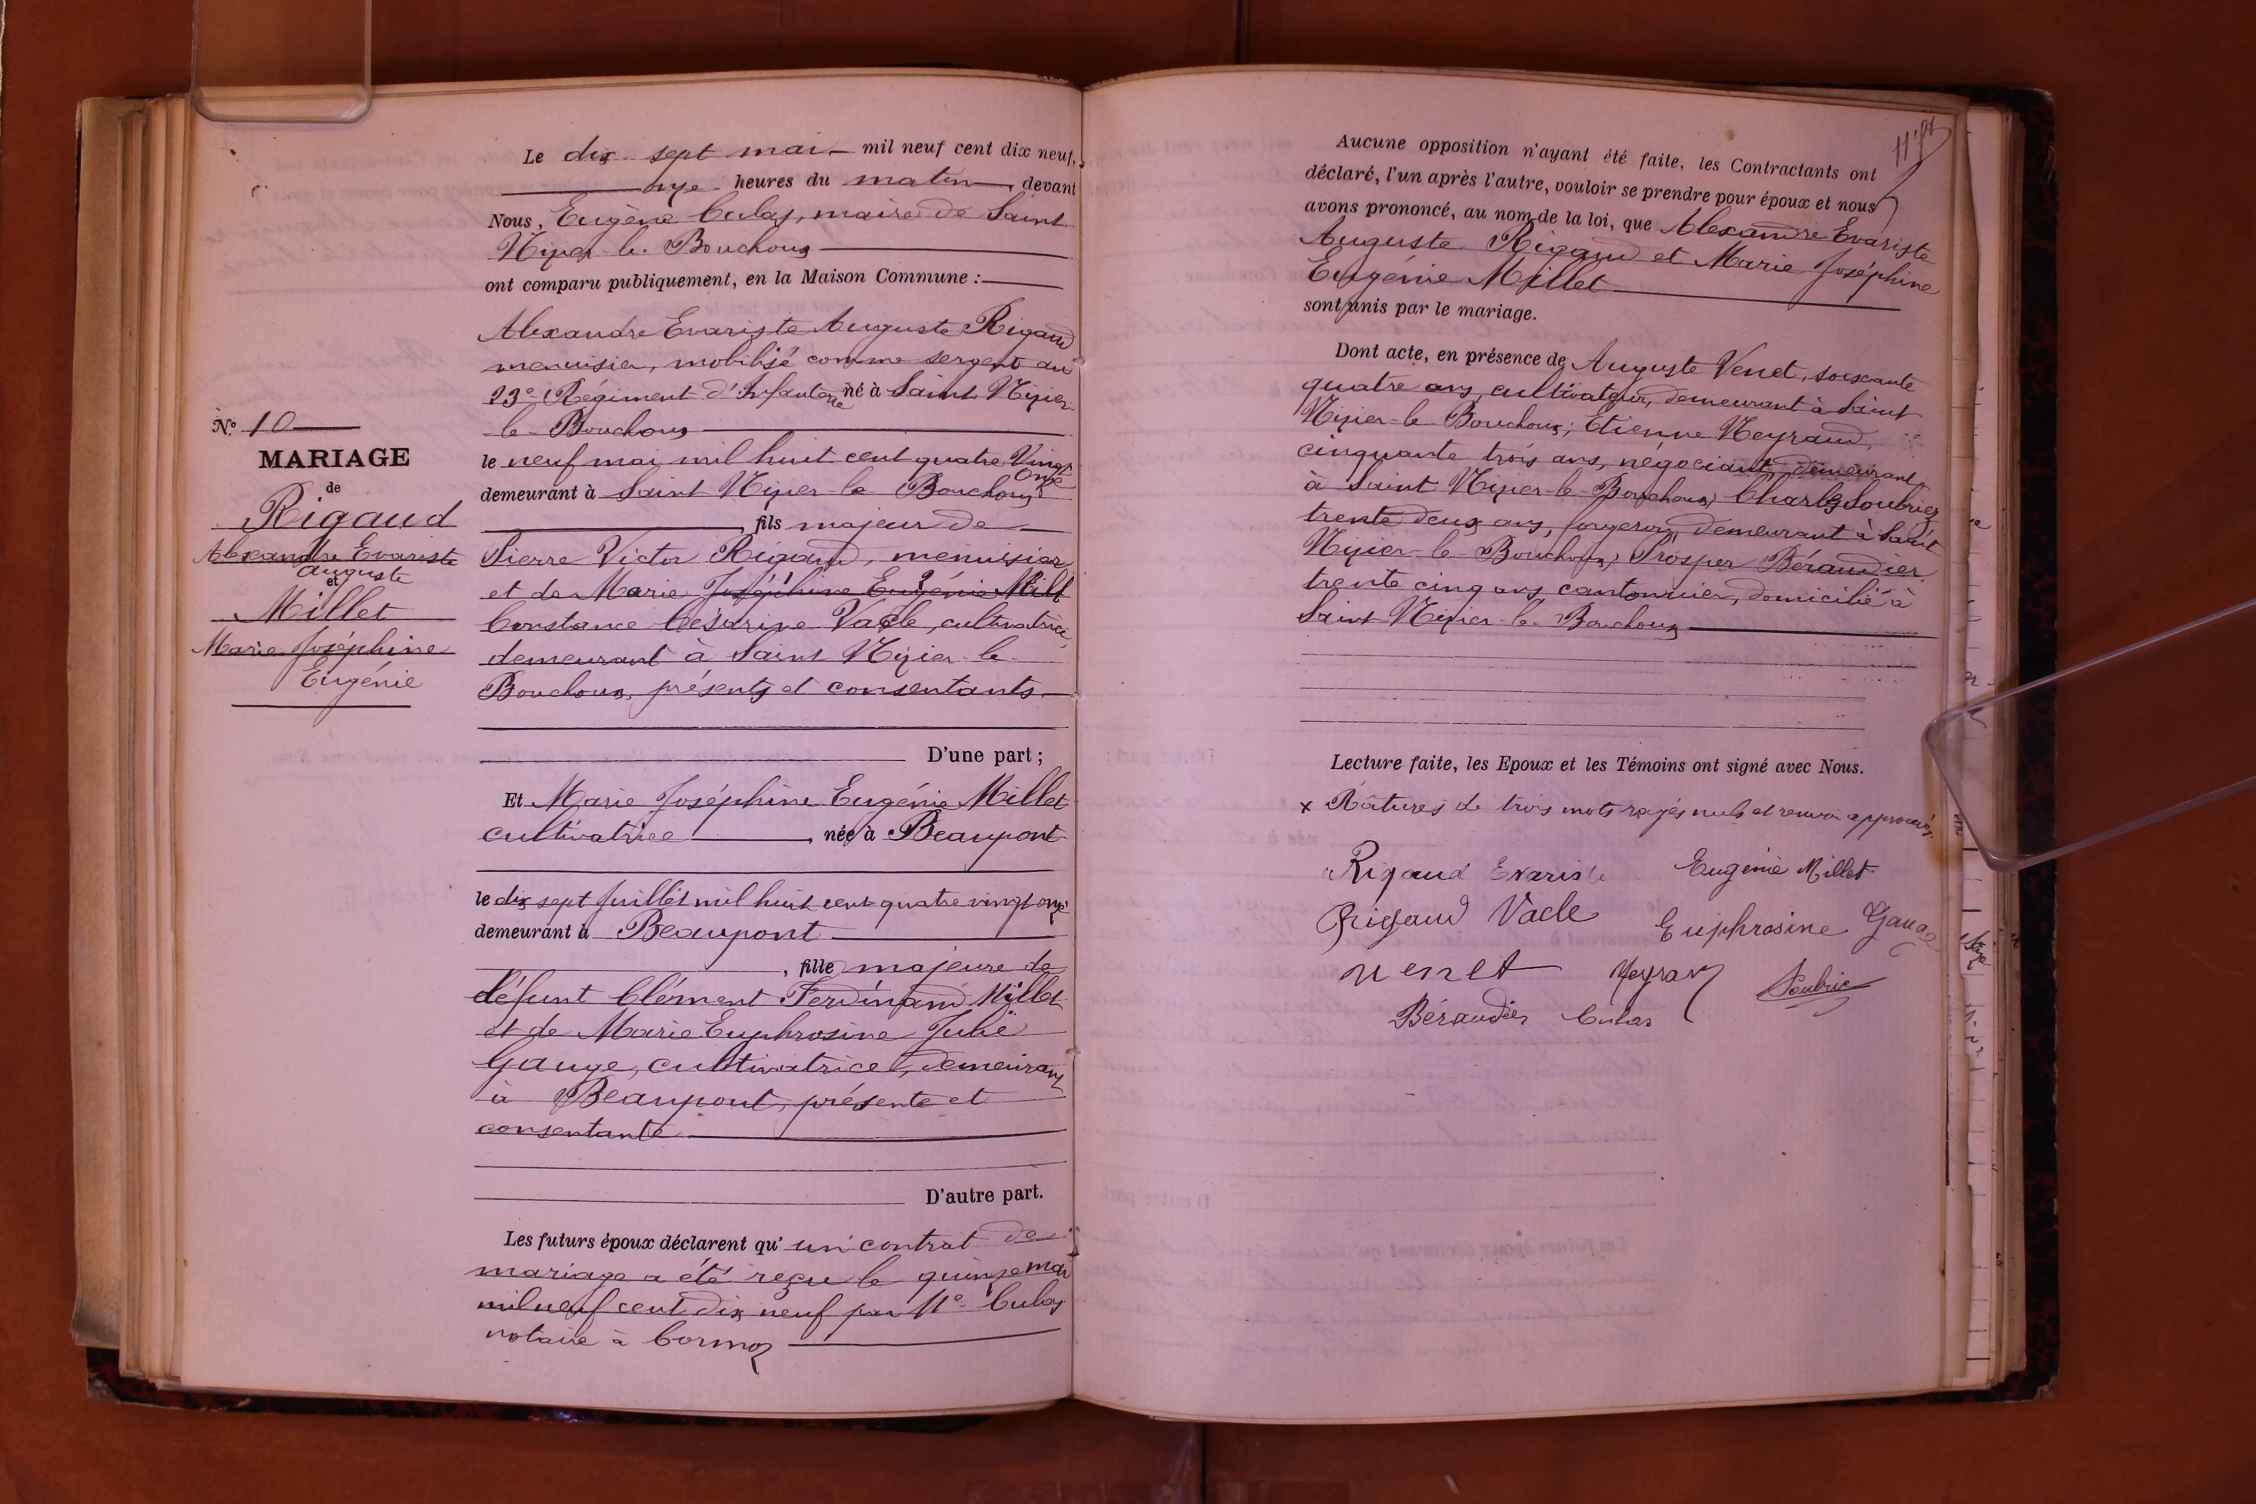 N° 10
MARIAGE
de
Rigaud
Alexandre Evariste
Auguste
et
Millet
Marie Joséphine
Eugénie
Le dix sept mai mil neuf cent dix neuf,
onze heures du matin, devant
Nous, Eugène Culas, maire de Saint
Nizier le Bouchoux
ont comparu publiquement, en la Maison Commune :
Alexandre Evariste Auguste Rigaud
menuisier, mobilisé comme sergent au
23e Régiment d'Infanterie né à Saint Nizier
le Bouchoux
le neuf mai mil huit cent quatre Vingt
Onze
demeurant à Saint Nizier le Bouchoux
, fils majeur de
Pierre Victor Rigaud, menuisier
et de Marie Joséphine Eugénie Mill
Constance Césarine Vacle, cultivatrice,
demeurant à Saint Nizier le
Bouchoux, présents et consentants
D'une part ;
Et Marie Joséphine Eugénie Millet
cultivatrice, née à Beaupont
le dix sept juillet mil huit cent quatre vingt onze
demeurant à Beaupont
, fille majeure de
défunt Clément Ferdinand Millet
et de Marie Euphrosine Julie
Gauge, cultivatrice, demeurant
à Beaupont, présente et
consentante
D'autre part.
Les futurs époux déclarent qu' un contrat de
mariage a été reçu le quinze mai
mil neuf cent dix neuf par Me Culas
notaire à Cormoz
Aucune opposition n'ayant été faite, les Contractants ont
déclaré, l'un après l'autre, vouloir se prendre pour époux et nous
avons prononcé, au nom de la loi, que Alexandre Evariste
Auguste Rigaud et Marie Joséphine
Eugénie Millet
sont unis par le mariage.
Dont acte, en présence de Auguste Venet, soixante
quatre ans, cultivateur, demeurant à Saint
Nizier-le Bouchoux; Etienne Neyraud,
cinquante trois ans, négociant, demeurant
à Saint Nizier-le-Bouchoux; Charles Soubrier
trente deux ans, forgeron, demeurant à Saint
Nizier-le-Bouchoux, Prosper Béraudier
trente cinq ans, cantonnier, domicilié à
Saint Nizier-le-Bouchoux
Lecture faite, les Epoux et les Témoins ont signé avec Nous.
x Ratures de trois mots rayés nuls et renvoi approuvés
Rigaud Evariste Eugénie Millet
Rigaud Vacle Euphrosine Gauge
Venet
Béraudier Culas